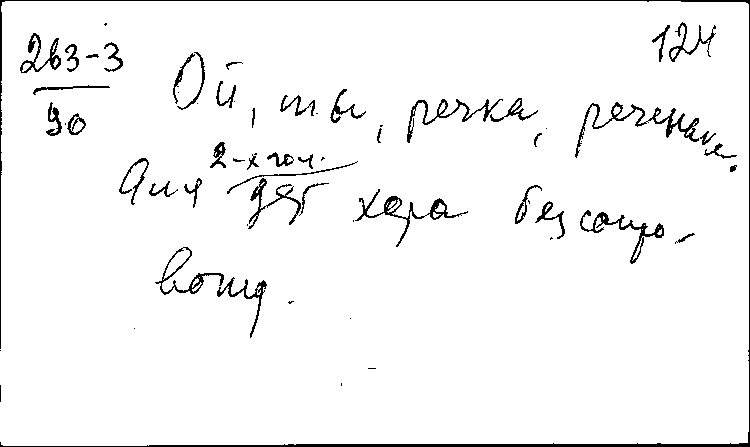 263-3
90
124
Ой, ты, речка, реченька.
Для 2-х гол. дет хора без сопро-
вожд.